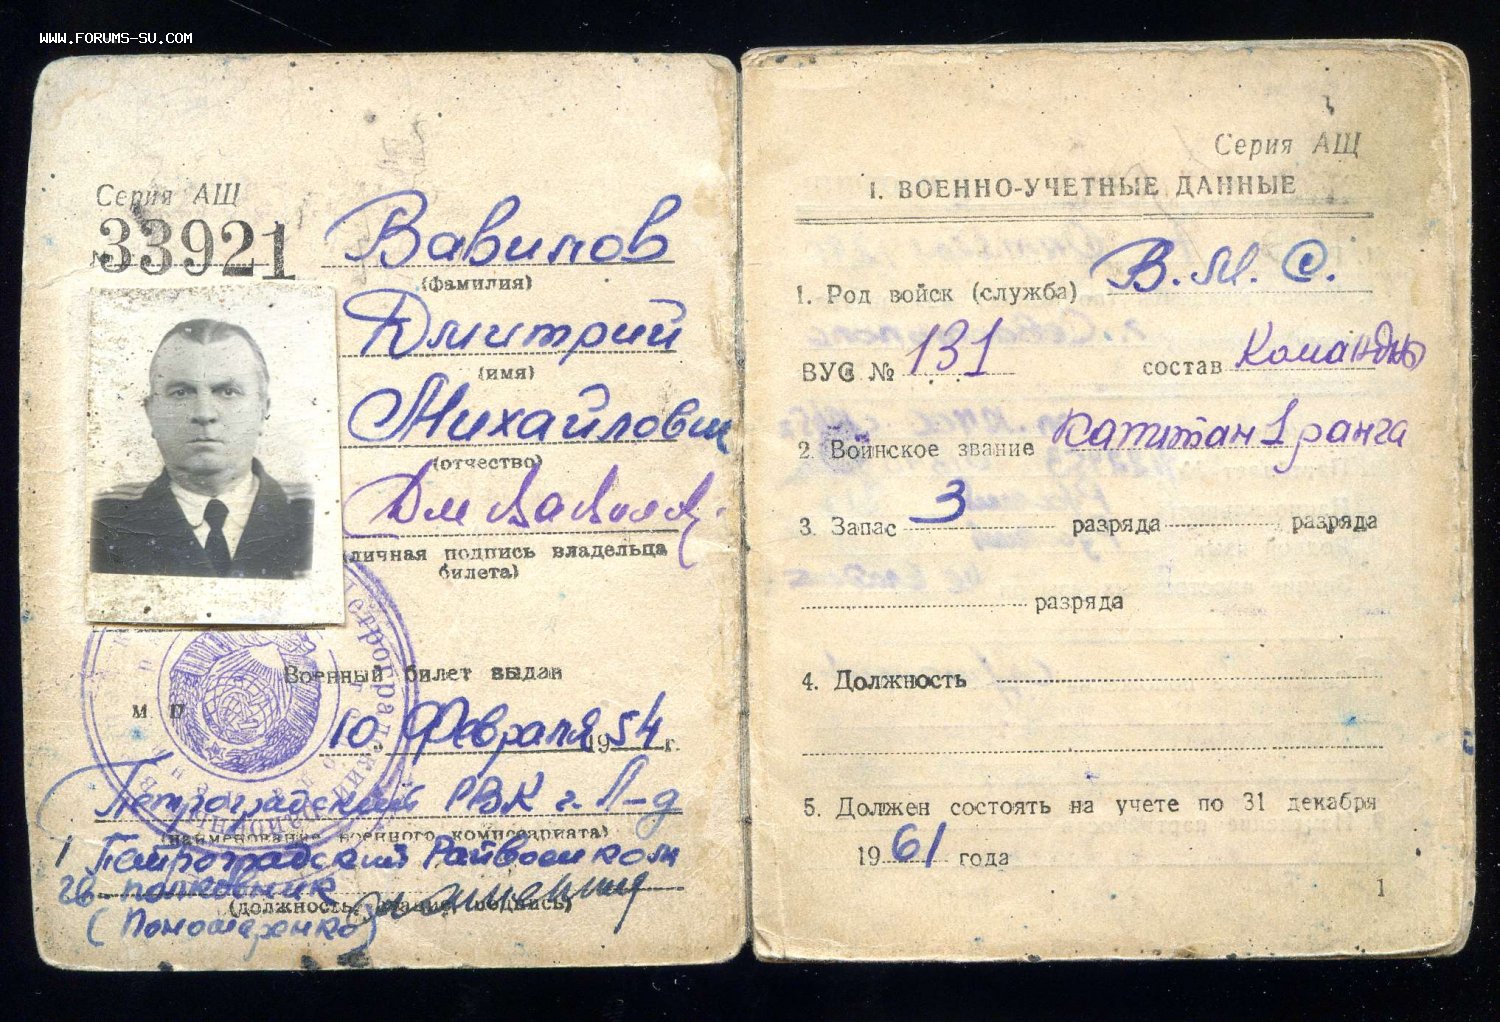 WWW.FORUMS-SU.COM
Серия АЩ
№ 33921
Вавилов
(фамилия)
Дмитрий
(имя)
Михайлович
(отчество)
(личная подпись владельца
билета)
Военный билет выдан
М. П.
10 Февраля 1954 г.
Петроградский РВК г. Л-д
(наименование военного комиссариата)
Петроградский Райвоенком
гв. полковник
(должность, звание, подпись)
(Пономаренко)
Серия АЩ
1. ВОЕННО-УЧЕТНЫЕ ДАННЫЕ
1. Род войск (служба) В. М. С.
ВУС № 131 состав Командн
2. Воинское звание капитан 1 ранга
3. Запас 3 разряда разряда
разряда
4. Должность
5. Должен состоять на учете по 31 декабря
1961 года
1